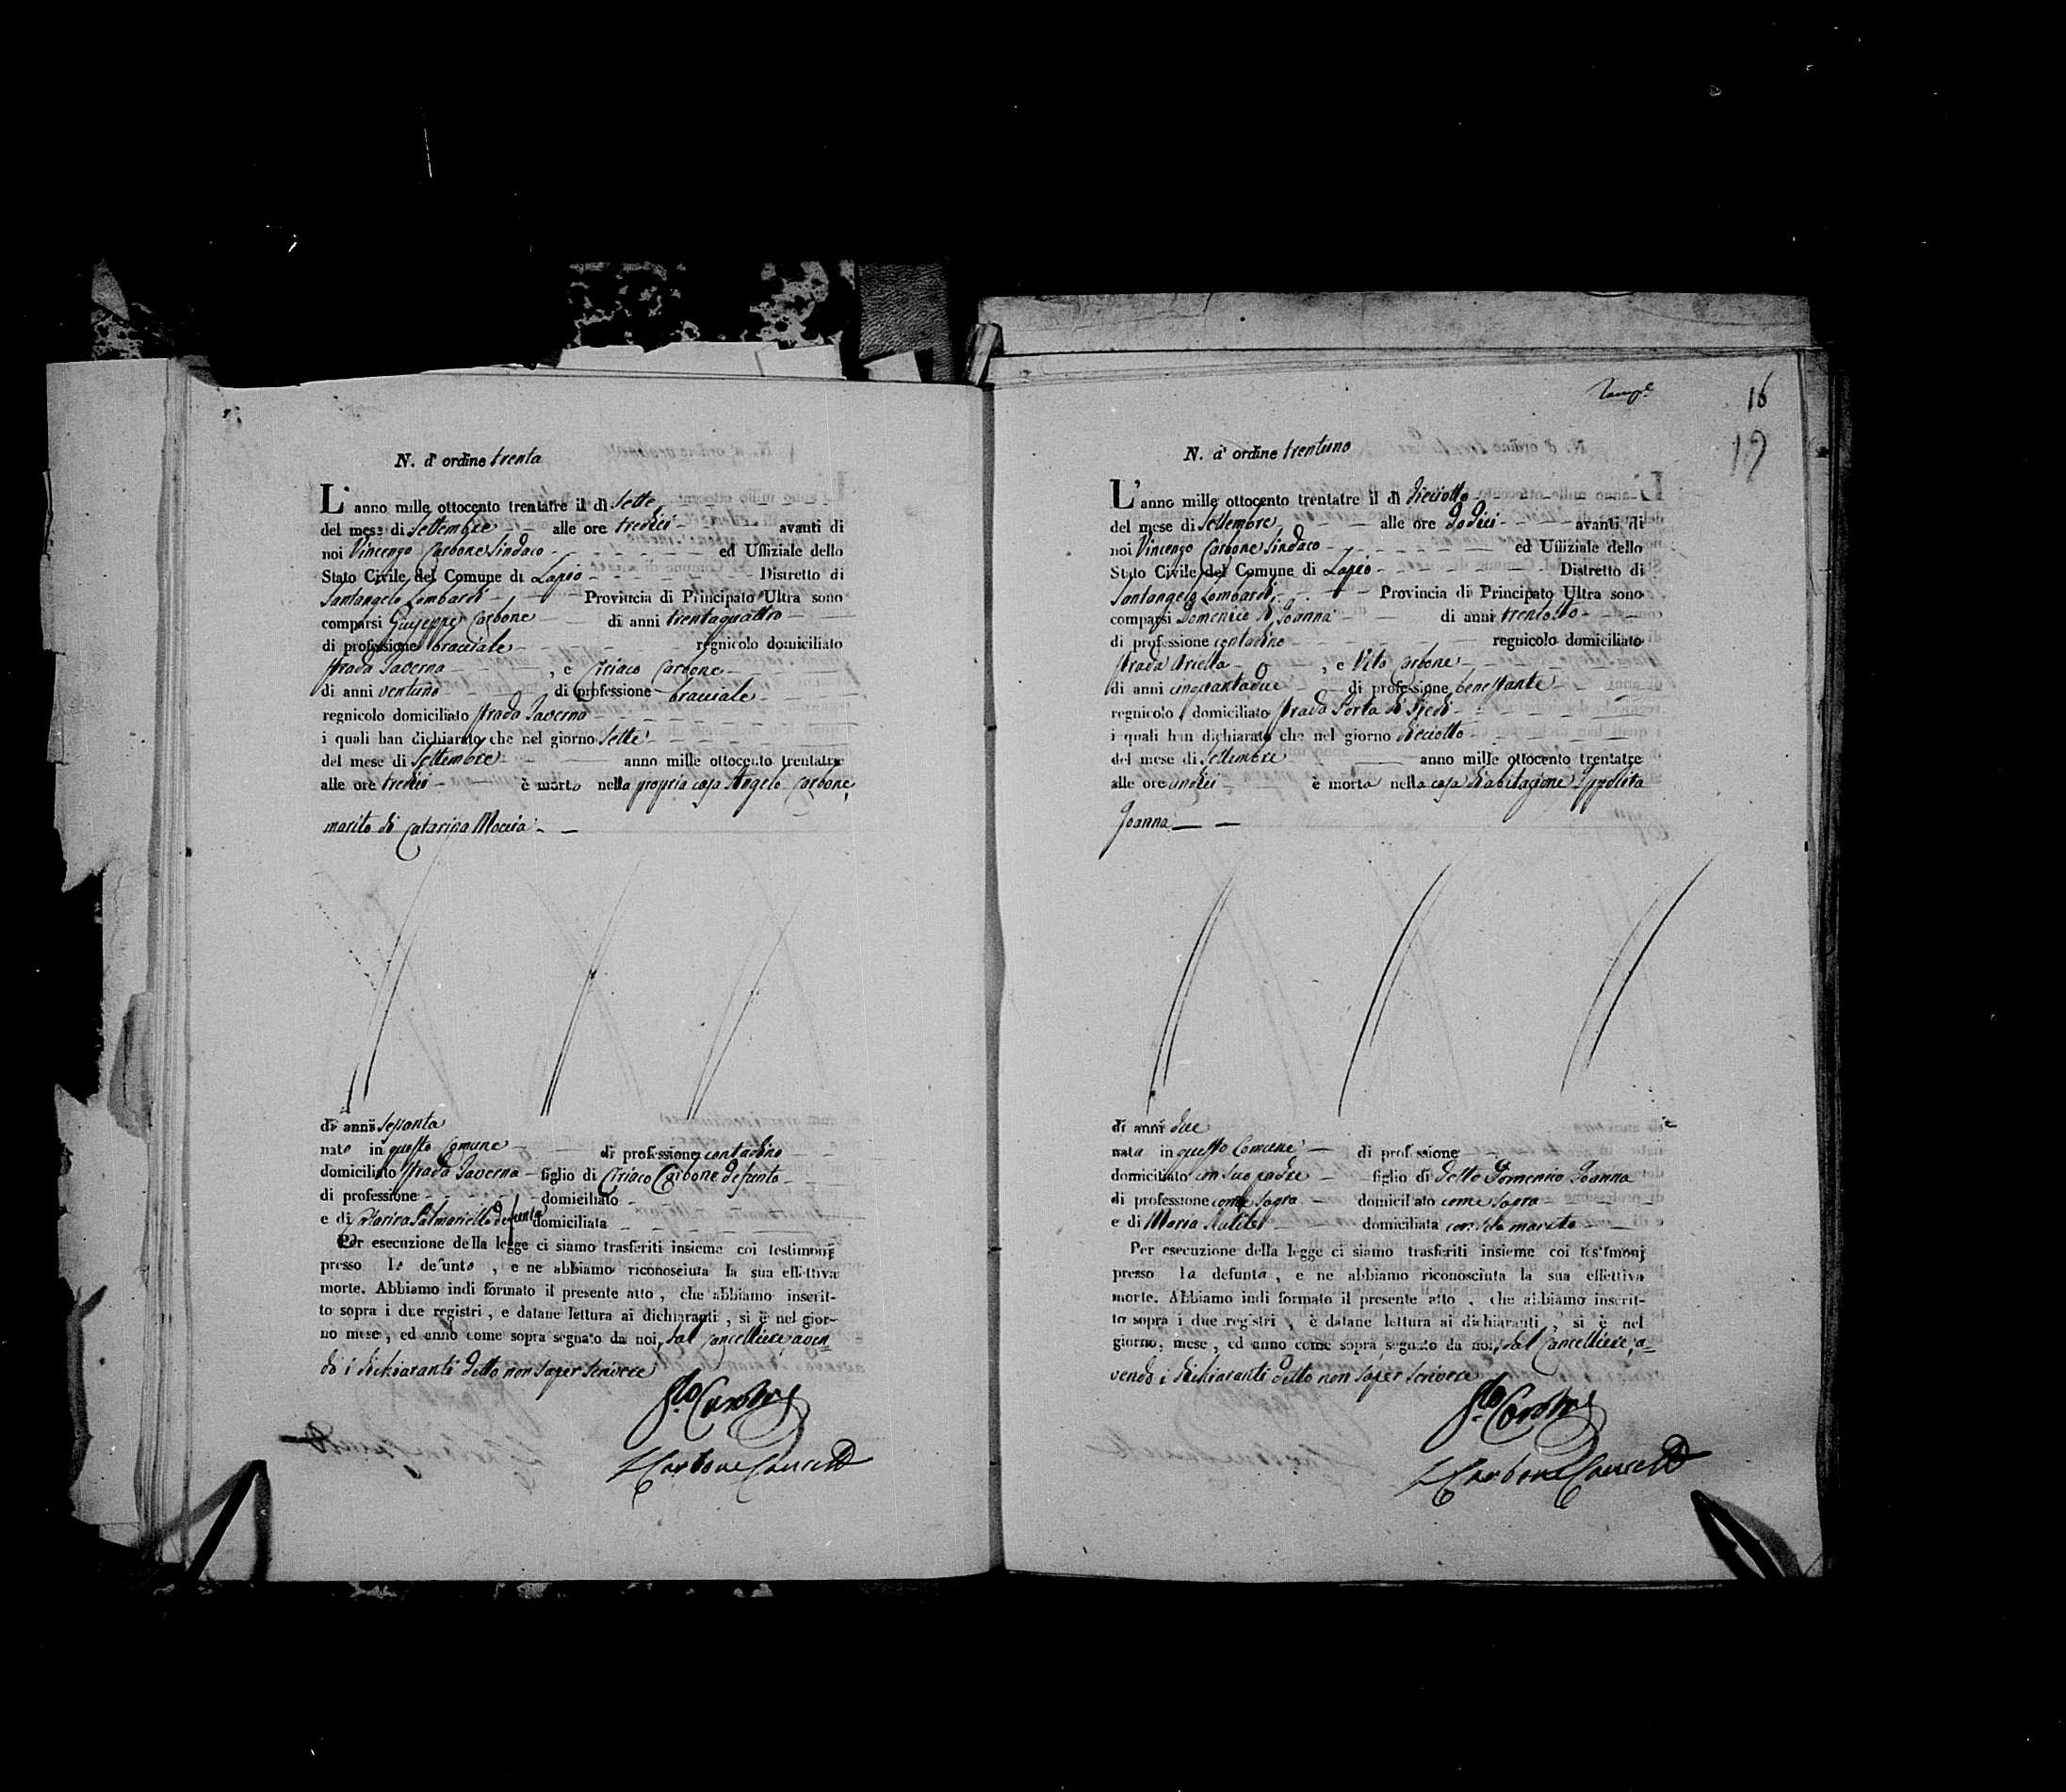 N. d' ordine trenta
L' anno mille ottocento trentatre il dì Sette
del mese di Settembre alle ore tredici avanti di
noi Vincenzo Carbone Sindaco ed Uffiziale dello
Stato Civile del Comune di Lapio Distretto di
Santangelo Lombardi Provincia di Principato Ultra sono
comparsi Giuseppe Carbone di anni trentaquattro
di professione bracciale regnicolo domiciliato
strada Taverna , e Ciriaco Carbone
di anni ventuno di professione bracciale
regnicolo domiciliato strada Taverna
i quali han dichiarato che nel giorno Sette
del mese di Settembre anno mille ottocento trentatre
alle ore tredici è morto nella propria casa Angelo Carbone
marito di Catarina Moccia
di anni Sessanta
nato in questo Comune di professione contadino
domiciliato strada Taverna figlio di Ciriaco Carbone defunto
di professione domiciliato
e di Catarina defunta domiciliata
Per esecuzione della legge ci siamo trasferiti insieme coi testimonj
presso lo defunto , e ne abbiamo riconosciuta la sua effettiva
morte. Abbiamo indi formato il presente atto , che abbiamo inserit-
to sopra i due registri , e datane lettura ai dichiaranti , si è nel gior-
no mese , ed anno come sopra segnato da noi, dal Cancelliere aven-
do i dichiaranti detto non saper scrivere
Carbone
Carbone Cancell
16
19
N. d' ordine trentuno
L' anno mille ottocento trentatre il dì dieciotto
del mese di Settembre alle ore dodici avanti di
noi Vincenzo Carbone Sindaco ed Uffiziale dello
Stato Civile del Comune di Lapio Distretto di
Santangelo Lombardi Provincia di Principato Ultra sono
comparsi Domenico di Joanna di anni trentotto
di professione contadino regnicolo domiciliato
strada Ariella , e Vito Carbone
di anni cinquantadue di professione benestante
regnicolo domiciliato strada Porta di Piedi
i quali han dichiarato che nel giorno dieciotto
del mese di Settembre anno mille ottocento trentatre
alle ore undici è morta nella casa d'abitazione Ippolita
Joanna
di anni due
nata in questo Comune di professione
domiciliato con suo padre figlio di detto Domenico Joanna
di professione come sopra domiciliato come sopra
e di Maria domiciliata con so marito
Per esecuzione della legge ci siamo trasferiti insieme coi testimonj
presso la defunta , e ne abbiamo riconosciuta la sua effettiva
morte. Abbiamo indi formato il presente atto , che abbiamo inserit-
to sopra i due registri , è datane lettura ai dichiaranti , si è nel
giorno, mese , ed anno come sopra segnato da noi, dal Cancelliere, a-
vendo i dichiaranti detto non saper scrivere
Carbone
Carbone Cancell